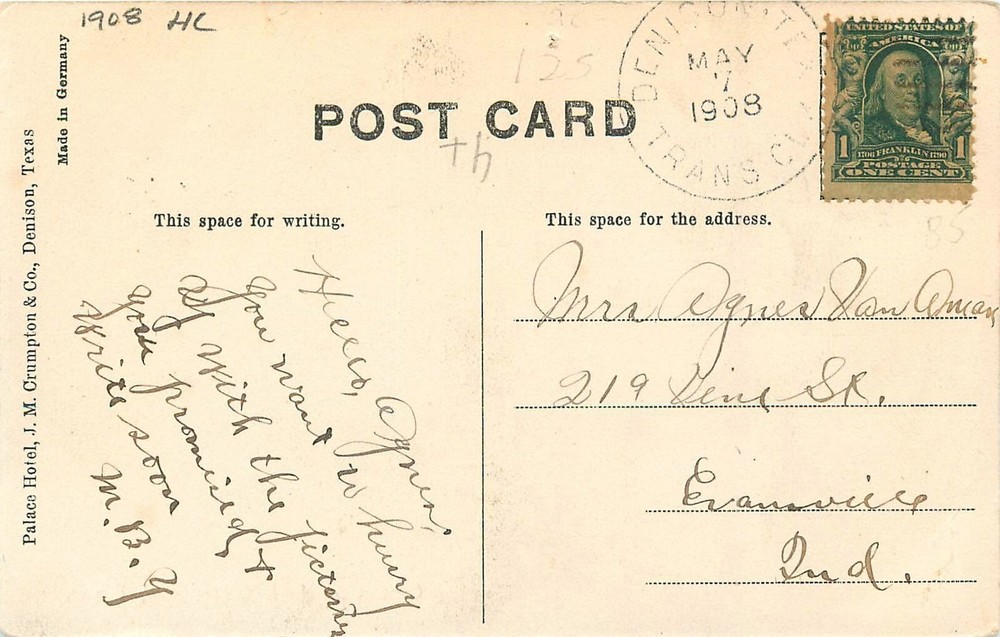 1908 HC
Made in Germany
Palace Hotel, J. M. Crumpton & Co., Denison, Texas
POST CARD
125
DENISON, TEX.
MAY
7
1908
TRANS. CLK.
UNITED STATES OF
AMERICA
1 1706 FRANKLIN 1790 1
POSTAGE
ONE CENT
85
This space for writing.
This space for the address.
Hello, Agnes,
you want to hurry
up with the pictures
you promised &
write soon
M. B. Y
Mrs Agnes Van Oman
219 Vine St.
Evansville
Ind.